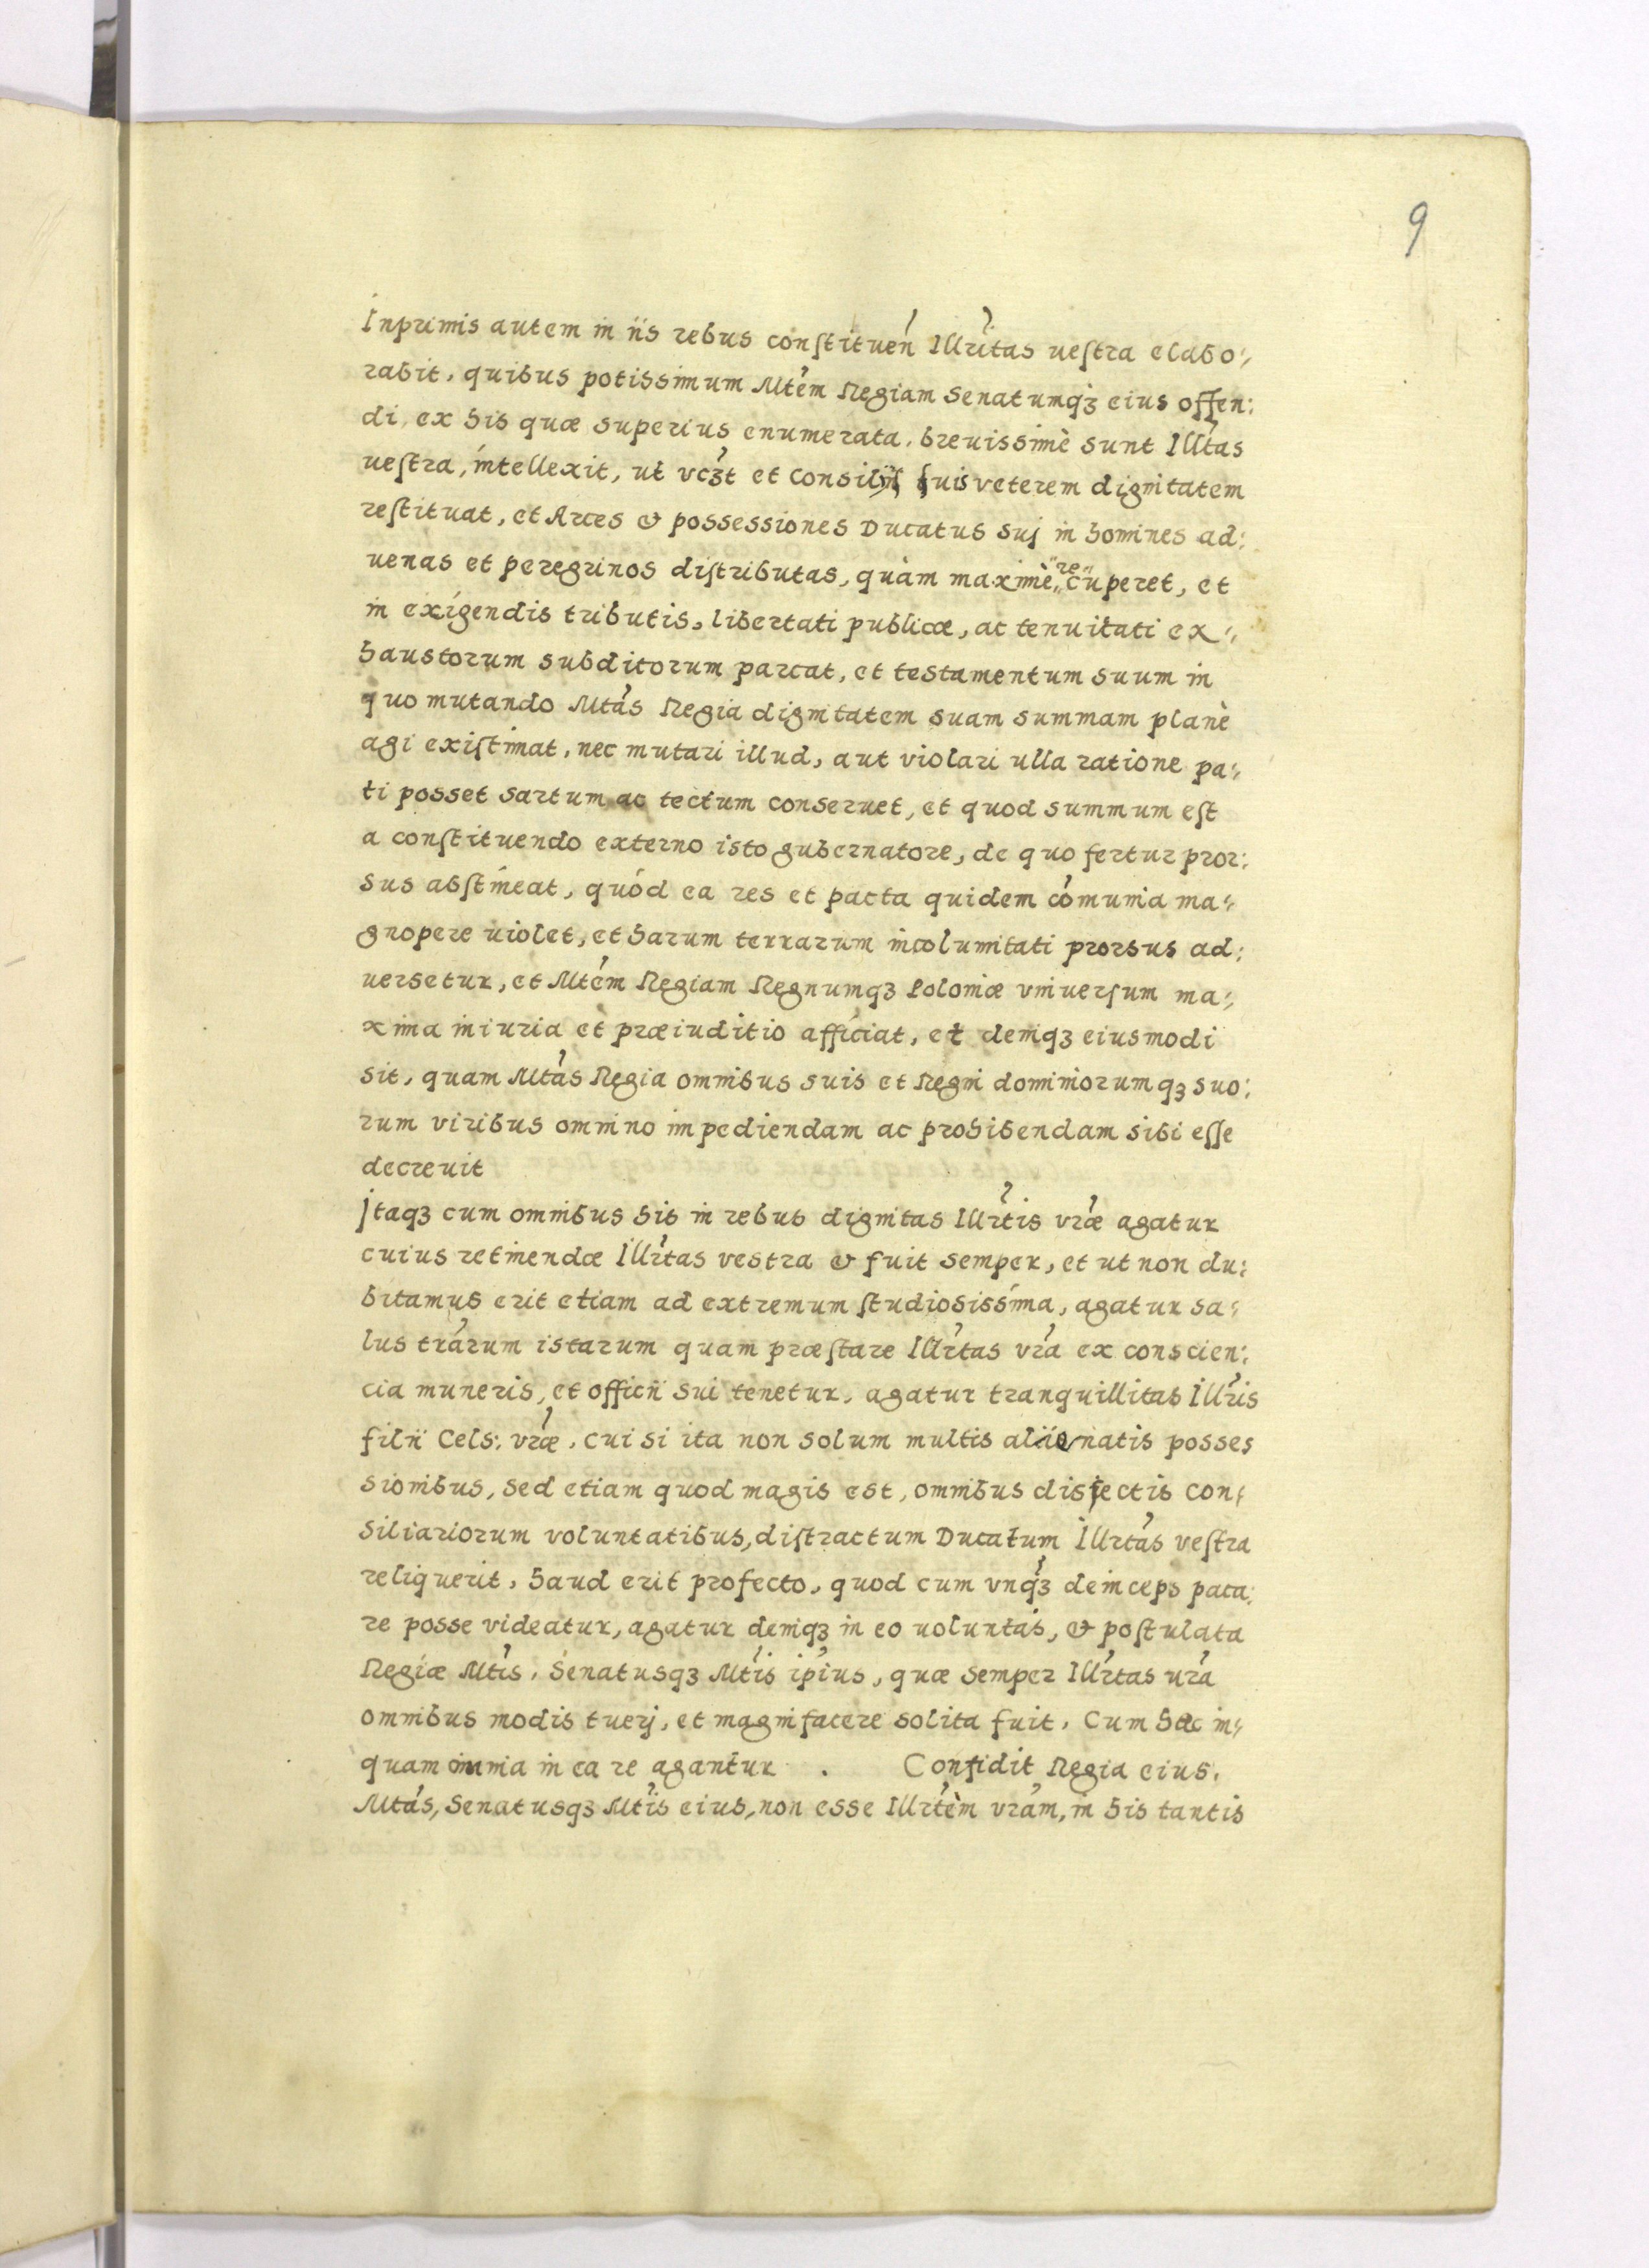 9
Inprimis autem in iis rebus conſtituen̄ Illritas ueſtra elabo:,
rabit, quibus potissimum Mtem Regiam Senatumqꝫ eius offen:
di, ex his quæ superius enumerata, breuissimè sunt Illtas
ueſtra, intellexit, ut vcꝫt et consiliis ſuis veterem dignitatem
reſtituat, et Arces & possessiones Ducatus suj in homines ad:
uenas et peregrinos diſtributas, quàm maximè "re" cuperet, et
in exigendis tributis, libertati publicæ, ac tenuitati ex:,
haustorum subditorum parcat, et testamentum suum in
quo mutando Mtas Regia dignitatem suam summam planè
agi exiſtimat, nec mutari illud, aut violari ulla ratione pa:,
ti posset sartum ac tectum conseruet, et quod summum eſt
a conſtituendo externo isto gubernatore, de quo fertur pror:
sus abſtineat, quód ea res et pacta quidem cómunia ma:,
gnopere uiolet, et harum terrarum incolumitati prorsus ad:
uersetur, et Mtem Regiam Regnumqꝫ Poloniæ vniuerſum ma:,
xima iniuria et præiuditio afficiat, et deniqꝫ eiusmodi
sit, quam Mtas Regia omnibus suis et Regni dominiorumqꝫ suo:
rum viribus omnino impediendam ac prohibendam sibi eſſe
decreuit
Jtaqꝫ cum omnibus his in rebus dignitas Illrtis vræ agatur
cuius retinendæ Illrtas vestra & fuit semper, et ut non du:
bitamus erit etiam ad extremum ſtudiosissima, agatur sa:,
lus trarum istarum quam præſtare Illrtas vra ex conscien:,
cia muneris, et officii sui tenetur, agatur tranquillitas Illris
filii Cels: vræ, cui si ita non solum multis alienatis posses
sionibus, sed etiam quod magis est, omnibus disiectis con:,
siliariorum voluntatibus, diſtractum Ducatum Illrtas veſtra
reliquerit, haud erit profecto, quod cum vnqꝫ deinceps paca:
re posse videatur, agatur deniqꝫ in eo uoluntas, & poſtulata
Regiæ Mtis, Senatusqꝫ Mtis ipius, quæ semper Illrtas ura
omnibus modis tuerj, et magnifacere solita fuit, Cum hæc in:,
quam omnia in ea re agantur . Confidit Regia eius,
Mtas, Senatusqꝫ Mtis eius, non esse Illrtem vram, in his tantis